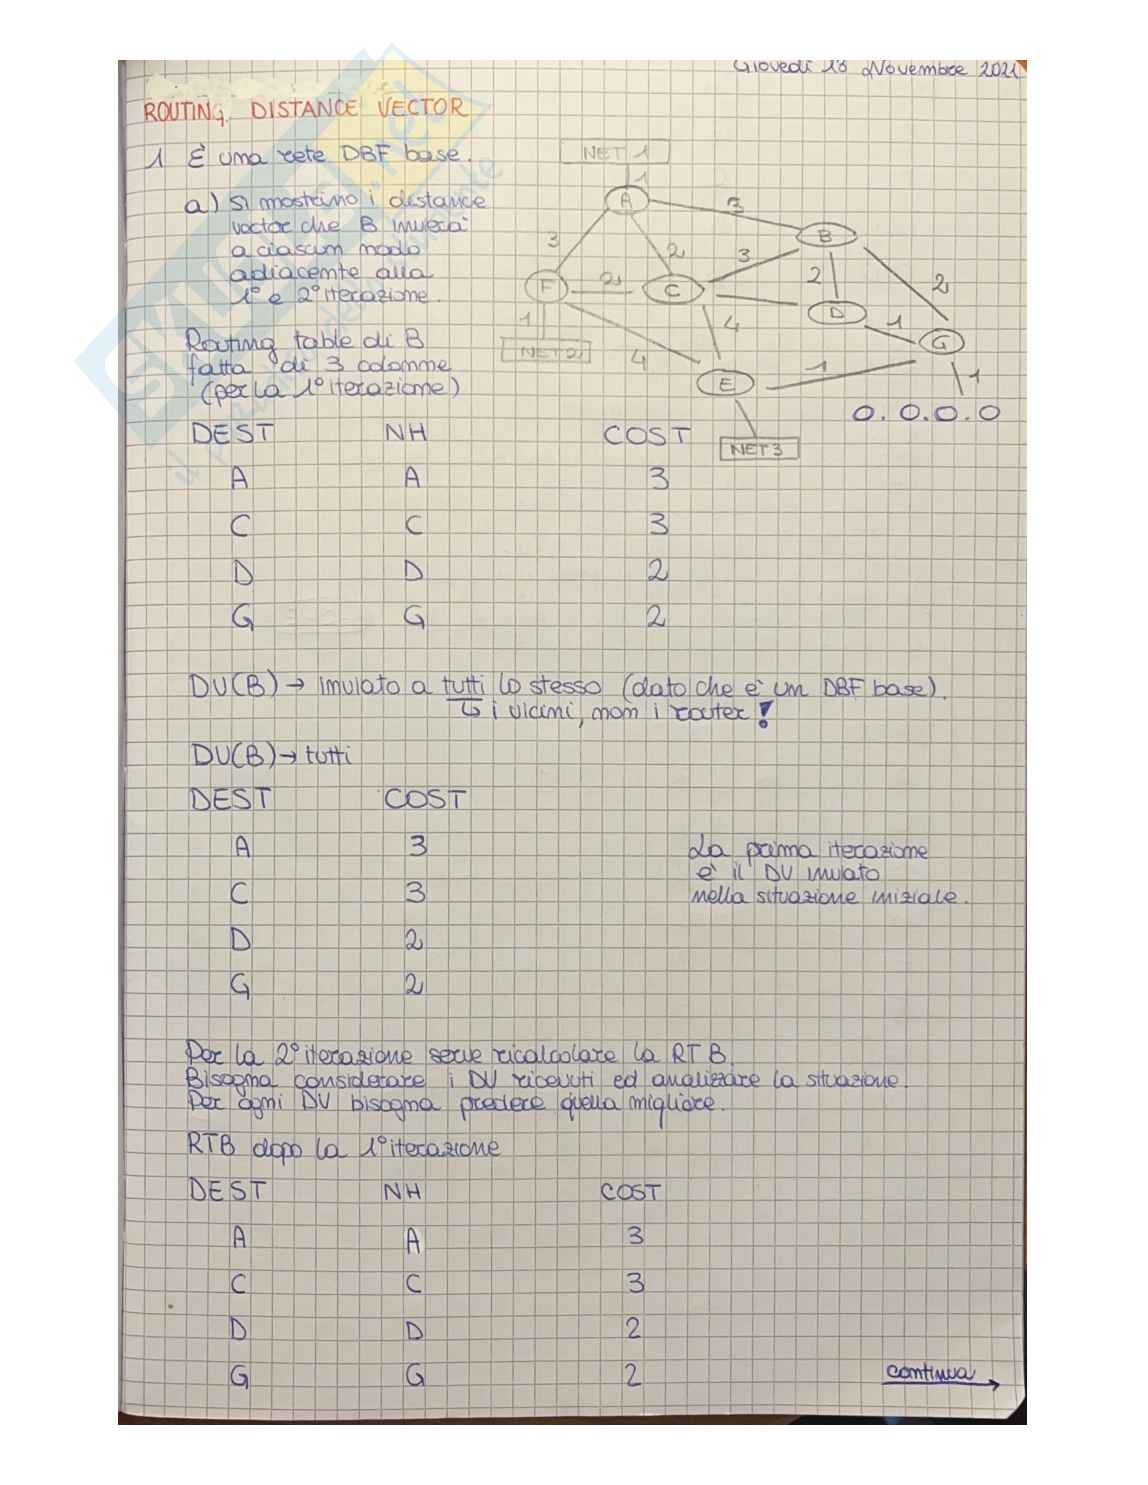 Giovedì 18 Novembre 2021
ROUTING DISTANCE VECTOR
1 È una rete DBF base.
a) si mostrino i distance
vector che B invierà
a ciascun nodo
adiacente alla
1° e 2° iterazione.
NET 1
1
A
3
B
3
2
3
2
2
F
2
C
D
1
G
1
4
NET 2
4
E
1
1
0.0.0.0
NET 3
Routing table di B
fatta di 3 colonne
(per la 1° iterazione)
DEST NH COST
A A 3
C C 3
D D 2
G G 2
DV(B) → inviato a tutti lo stesso (dato che è un DBF base).
↳ i vicini, non i router!
DV(B) → tutti
DEST COST
A 3
C 3
D 2
G 2
La prima iterazione
è il DV inviato
nella situazione iniziale.
Per la 2° iterazione serve ricalcolare la RT B.
Bisogna considerare i DV ricevuti ed analizzare la situazione.
Per ogni DV bisogna predere quella migliore.
RTB dopo la 1° iterazione
DEST NH COST
A A 3
C C 3
D D 2
G G 2
continua →